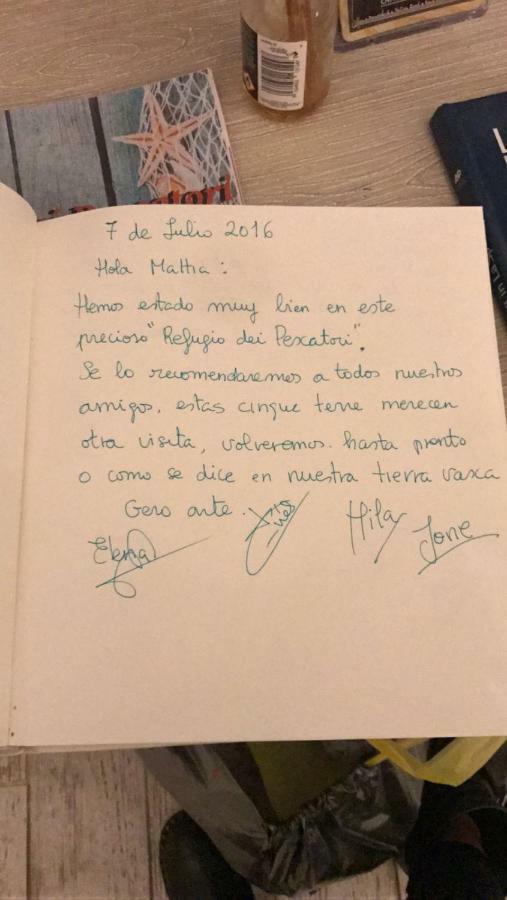 7 de Julio 2016
Hola Mattia:
Hemos estado muy bien en este
precioso "Refugio dei Pexcatori".
Se lo recomendaremos a todos nuestros
amigos, estas cinque terre merecen
otra visita, volveremos. hasta pronto
o como se dice en nuestra tierra vaxca
Gero arte.
Elena
Hilary
Jone